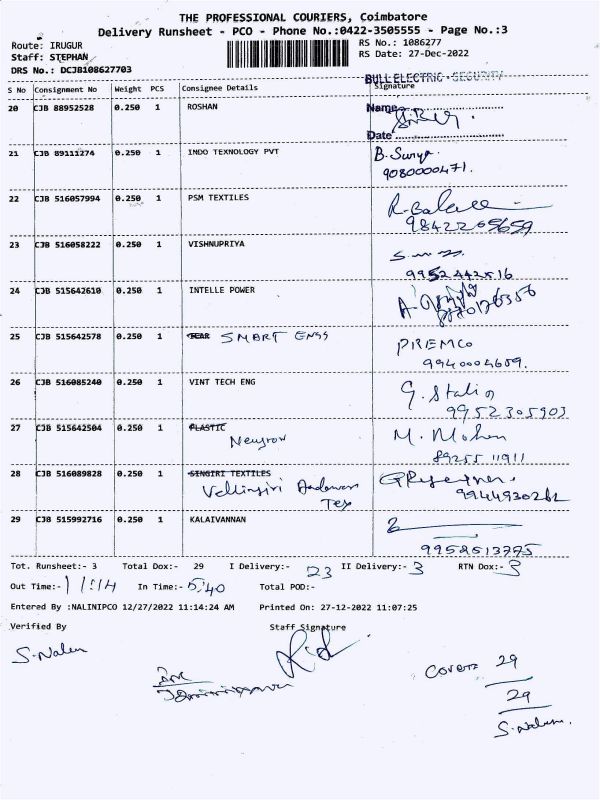 THE PROFESSIONAL COURIERS, Coimbatore
Delivery Runsheet - PCO - Phone No.:0422-3505555 - Page No.:3
Route: IRUGUR
RS No.: 1086277
Staff: STEPHAN
RS Date: 27-Dec-2022
DRS No.: DCJB108627703
BULL ELECTRIC - SECURITY
S No Consignment No Weight PCS Consignee Details Signature
20 CJB 88952528 0.250 1 ROSHAN
Name
Date
21 CJB 89111274 0.250 1 INDO TEXNOLOGY PVT B. Surya.
9080000471.
22 CJB 516057994 0.250 1 PSM TEXTILES R. Balaa
9842205659
23 CJB 516058222 0.250 1 VISHNUPRIYA
9952442516
24 CJB 515642610 0.250 1 INTELLE POWER
25 CJB 515642578 0.250 1 SMART ENGS PREMCO
9940004609.
26 CJB 516085240 0.250 1 VINT TECH ENG G. Stalin
9952305903
27 CJB 515642504 0.250 1 PLASTIC M. Mohan
89255 11911
28 CJB 516089828 0.250 1 SINGIRI TEXTILES
Vellingiri Andavar
Tex
9944930282
29 CJB 515992716 0.250 1 KALAIVANNAN
9958513775
Tot. Runsheet:- 3 Total Dox:- 29 I Delivery:- 23 II Delivery:- 3 RTN Dox:- 3
Out Time:- 11:14 In Time:- 5:40 Total POD:-
Entered By :NALINIPCO 12/27/2022 11:14:24 AM Printed On: 27-12-2022 11:07:25
Verified By Staff Signature
S. Nalini
Covers 29
29
S. Nalini.